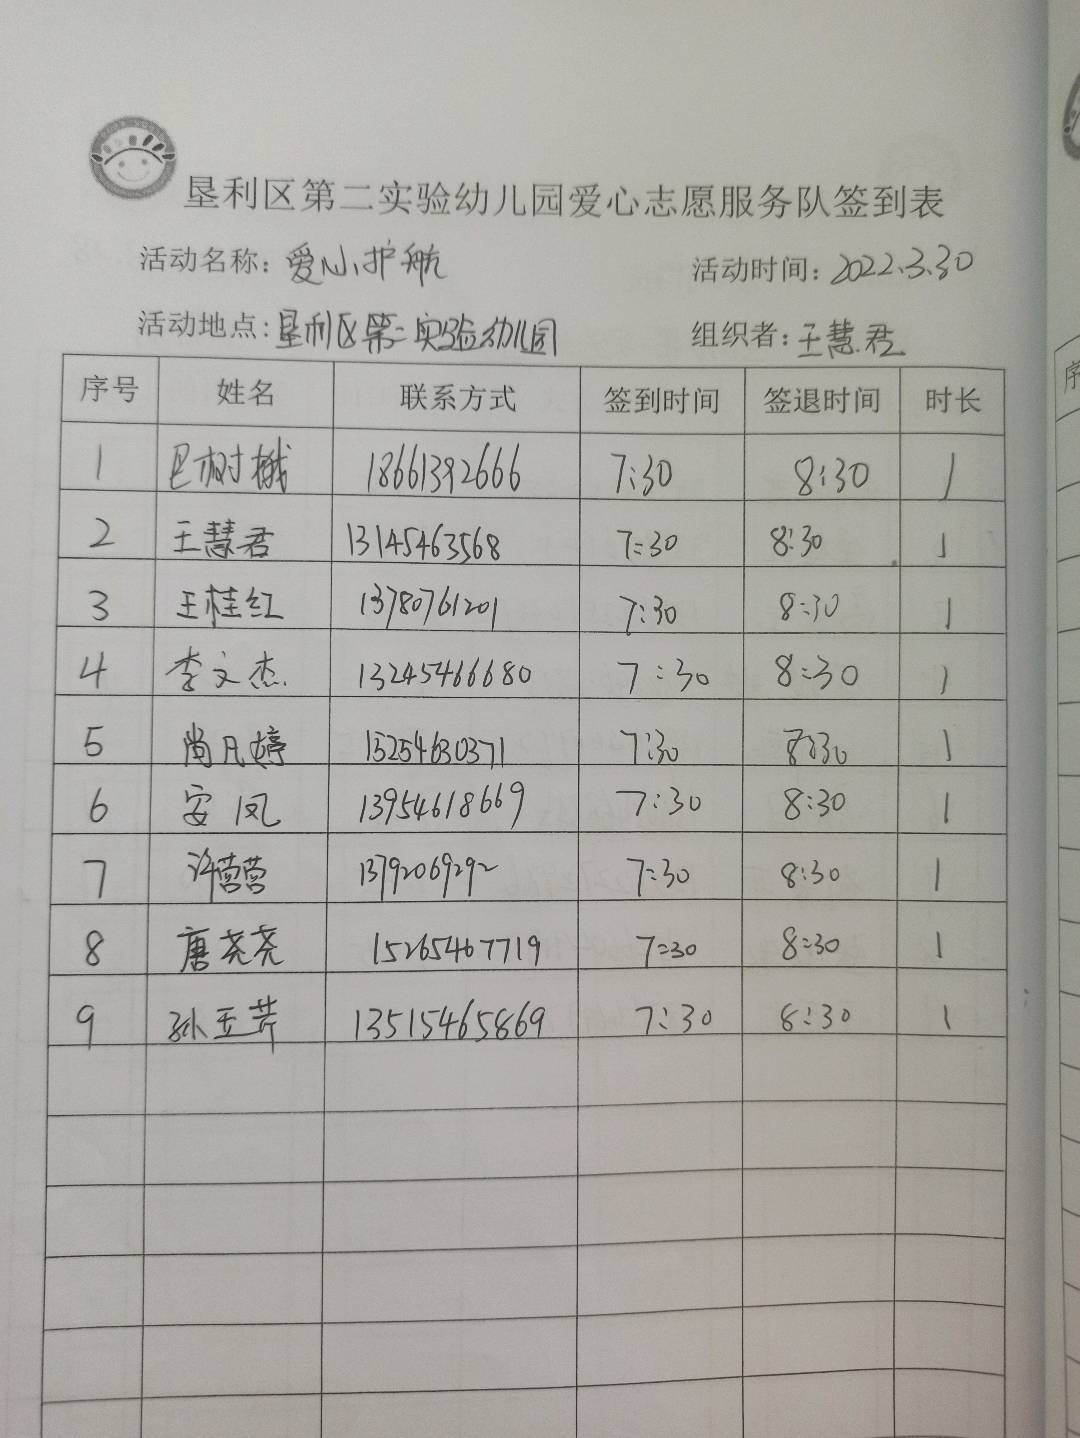 垦利区第二实验幼儿园爱心志愿服务队签到表
活动名称：爱心护航 活动时间：2022.3.30
活动地点：垦利区第二实验幼儿园 组织者：王慧君
序号 姓名 联系方式 签到时间 签退时间 时长
1 巴树 18661392666 7:30 8:30 1
2 王慧君 13145463568 7:30 8:30 1
3 王桂红 13780761201 7:30 8:30 1
4 李文杰 13245466680 7:30 8:30 1
5 尚凡婷 15254630371 7:30 8:30 1
6 安凤 13954618669 7:30 8:30 1
7 许营营 13792069292 7:30 8:30 1
8 唐尧尧 15265467719 7:30 8:30 1
9 孙玉芹 13515465869 7:30 8:30 1
序